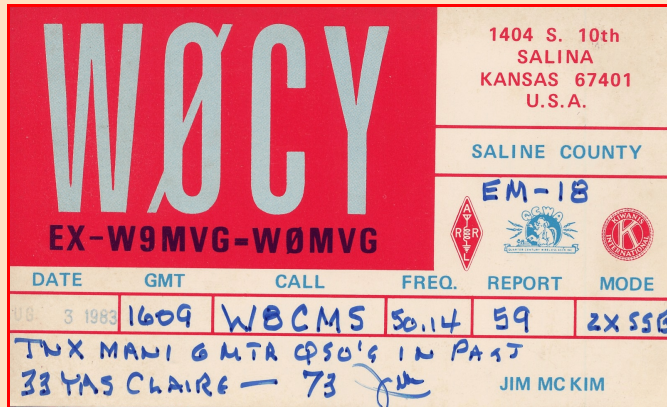 WØCY
EX-W9MVG-WØMVG
1404 S. 10th
SALINA
KANSAS 67401
U.S.A.
SALINE COUNTY
EM-18
A R R L
QCWA
KIWANIS
INTERNATIONAL
K
DATE GMT CALL FREQ. REPORT MODE
3 1983 1609 W8CMS 50.14 59 2X SSB
TNX MANI 6 MTR QSO'S IN PAST
33 YRS CLAIRE — 73 Jim
JIM MC KIM